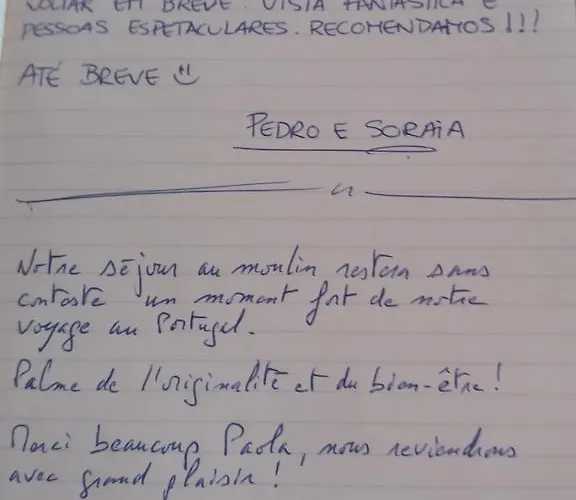 VOLTAR EM BREVE. VISTA FANTÁSTICA E
PESSOAS ESPETACULARES. RECOMENDAMOS!!!
ATÉ BREVE
PEDRO E SORAIA
Notre séjour au moulin restera sans
conteste un moment fort de notre
voyage au Portugal.
Palme de l'originalité et du bien-être!
Merci beaucoup Paola, nous reviendrons
avec grand plaisir!